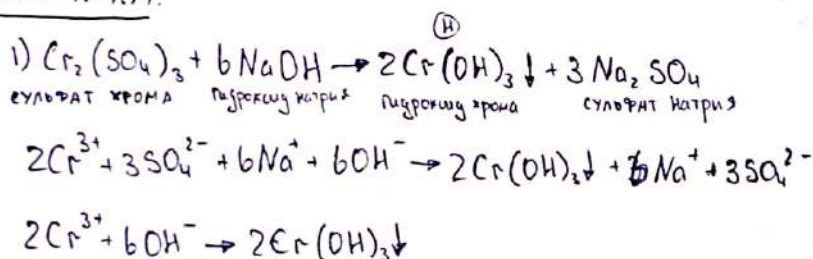 (H)
1) Cr₂(SO₄)₃ + 6NaOH → 2Cr(OH)₃↓ + 3Na₂SO₄
СУЛЬФАТ ХРОМА гидроксид натрия гидроксид хрома СУЛЬФАТ НАТРИЯ
2Cr³⁺ + 3SO₄²⁻ + 6Na⁺ + 6OH⁻ → 2Cr(OH)₃↓ + 6Na⁺ + 3SO₄²⁻
2Cr³⁺ + 6OH⁻ → 2Cr(OH)₃↓